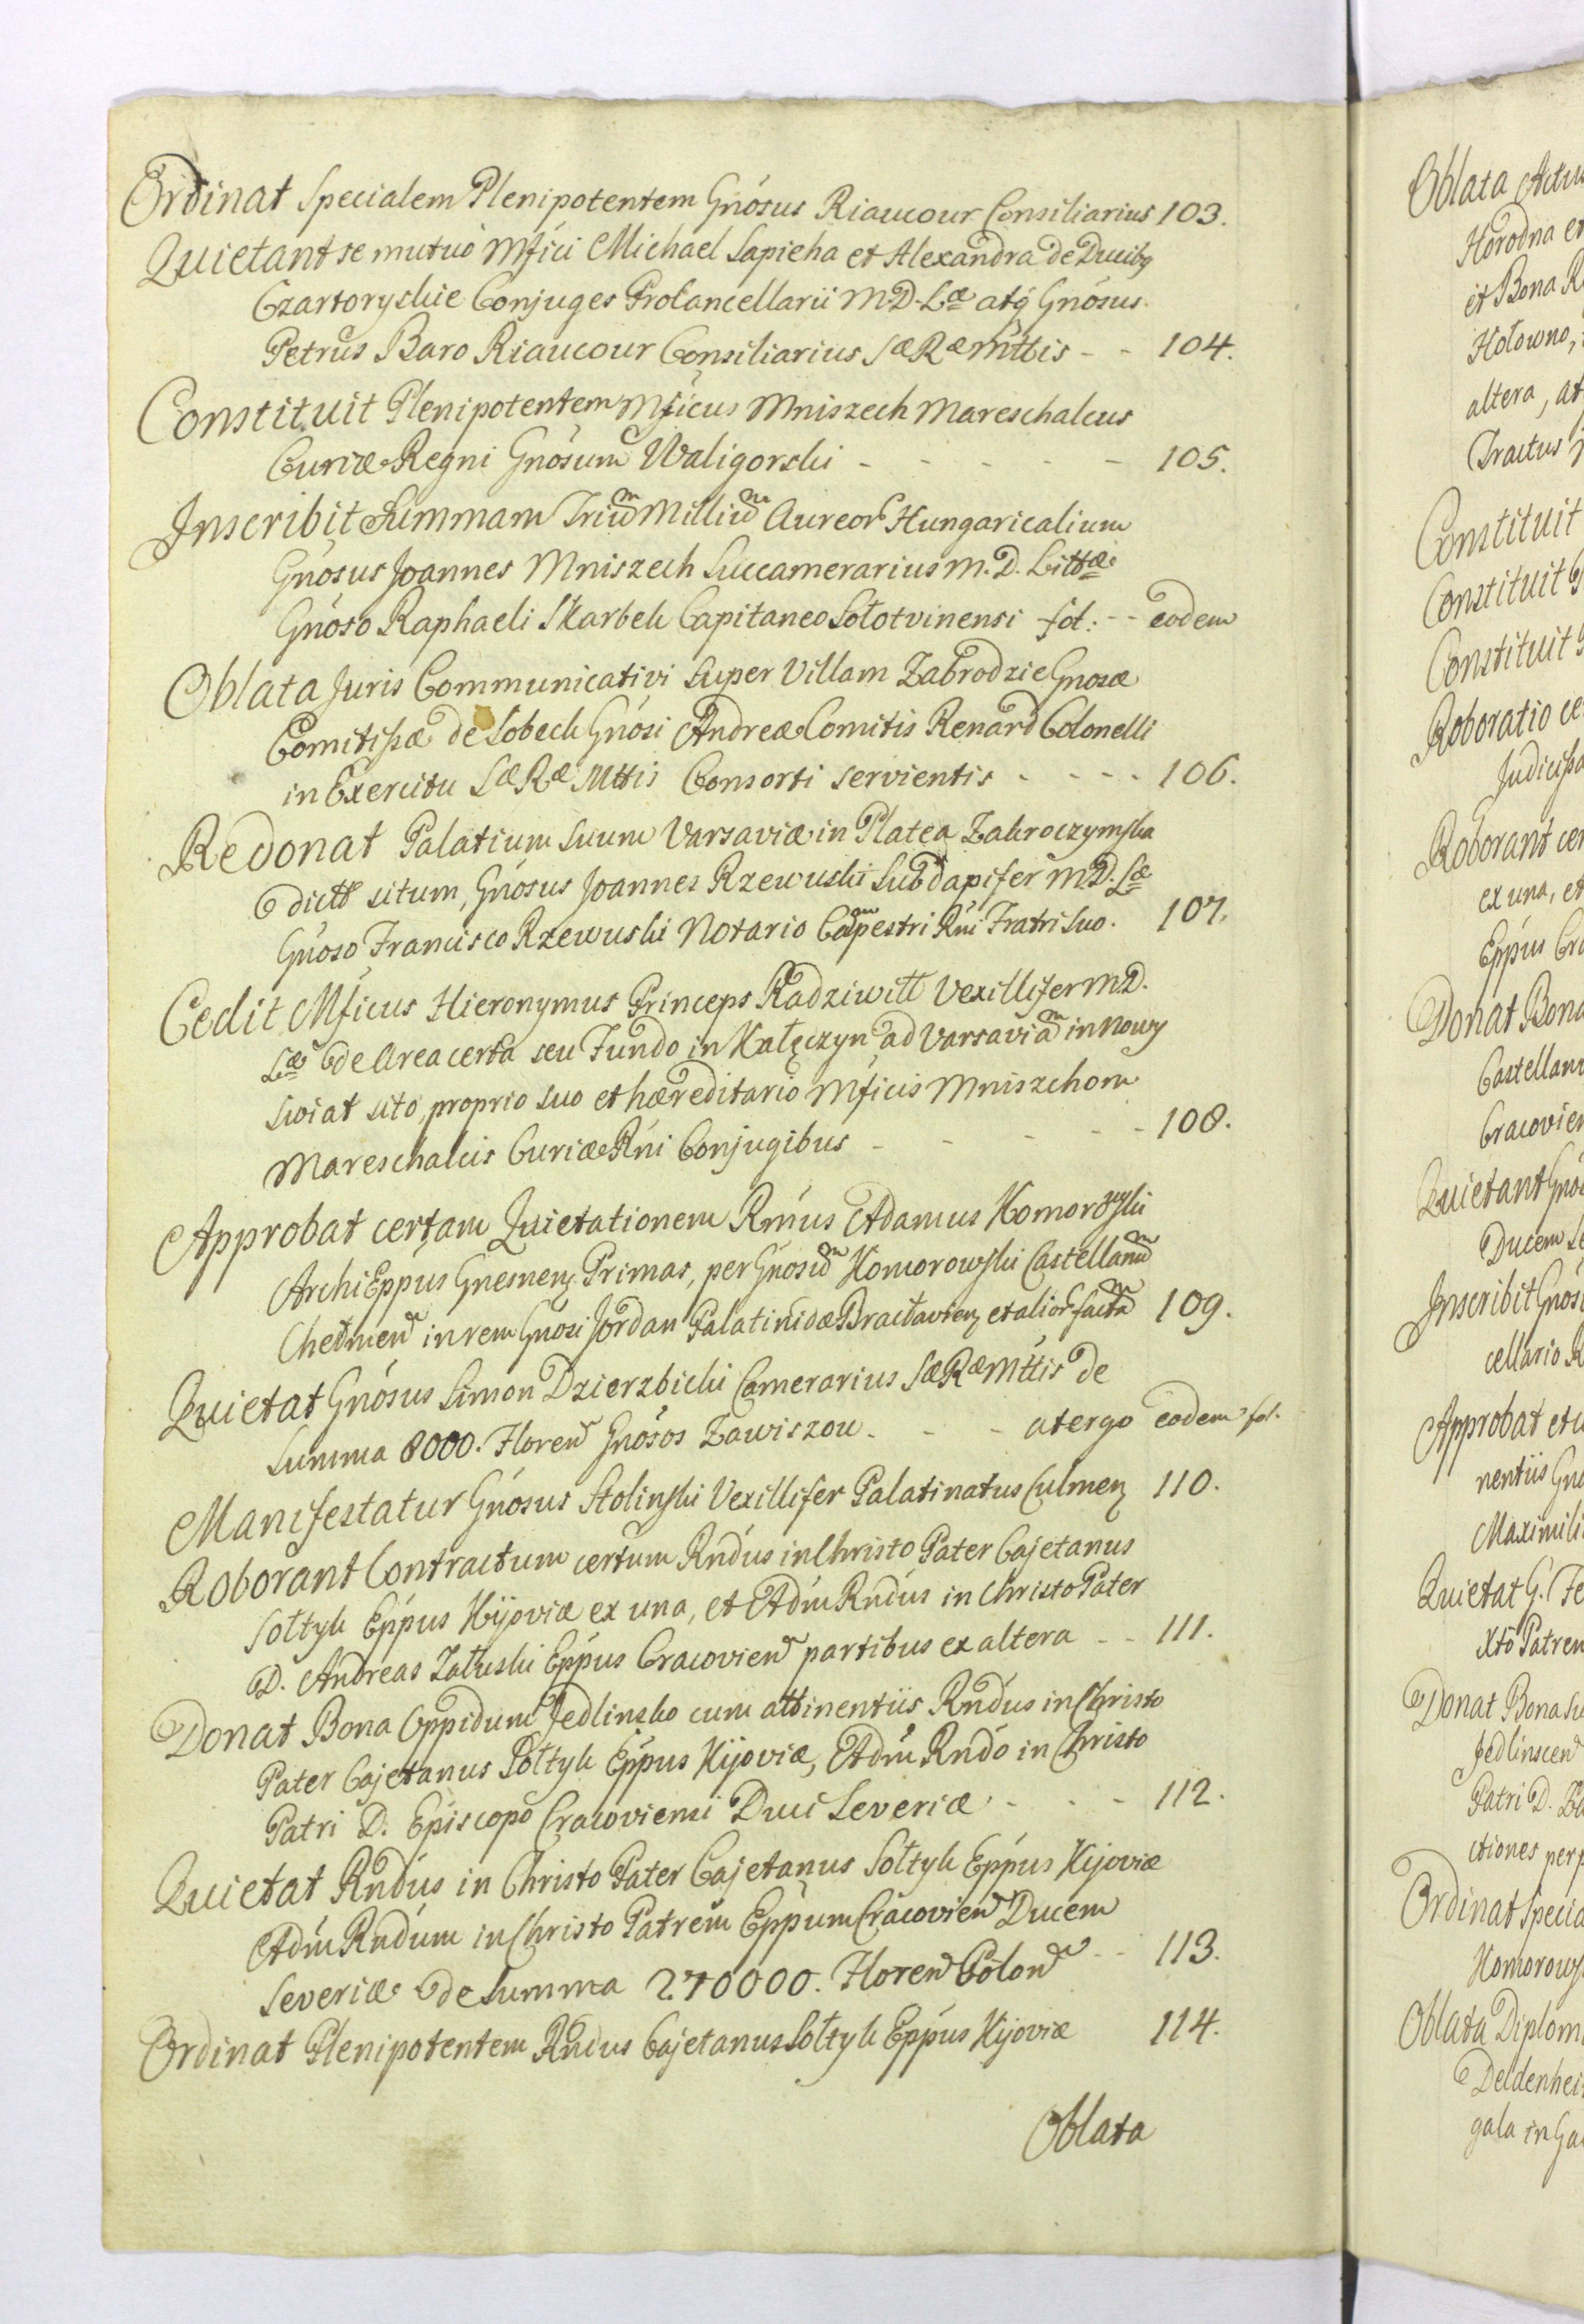 Ordinat Specialem Plenipotentem Gnósus Riaucour Consiliarius 103.
Quietant se mutuò Mfici Michael Sapieha et Alexandra de Ducibq
Czartoryskie Conjuges Procancellarii M.D.Læ atq́ Gnósus
Petrus Baro Riaucour Consiliarius SæRæMttis - - 104.
Constituit Plenipotentem Mficus Mniszech Mareschalcus
Curiæ Regni Gnósum Waligorski - - - - - 105.
Inscribit Summam Trium Millium Aureor Hungaricalium
Gnósus Joannes Mniszech Succamerarius M.D. Littæ
Gnóso Raphaeli Skarbek Capitaneo Sołotvinensi fol: - - eodem
Oblata Juris Communicativi super Villam Zabrodzie Gnosæ
Comitissæ de Sobeck Gnósi Andreæ Comitis Renard Colonelli
in Exercitu Sæ Ræ Mttis Consorti servientis - - - - 106.
Redonat Palatium suum Varsaviæ in Platea Zakroczymska
dicta situm, Gnósus Joannes Rzewuski Subdapifer M.D. Læ
Gnoso Francisco Rzewuski Notario Campestri Rni Fratri suo. 107.
Cedit Mficus Hieronymus Princeps Radziwiłł Vexillifer M.D.
Læ de Area certa seu Fundo in Kałęczyn ad Varsaviam in nowy
swiat sito, proprio suo et hæreditario Mficis Mniszchom
Mareschalcis Curiæ Rńi Conjugibus - - - - - 108.
Approbat certam Quietationem Rmus Adamus Komorowski
ArchiEppus Gnesnen Primas, per Gnosum Komorowski Castellanum
Chełmen in rem Gnosi Jordan Palatinidæ Bracłavien et alior facta 109.
Quietat Gnósus Simon Dzierzbicki Camerarius SæRæMttis de
Summa 8000. Floren Gnósos Zawiszow - - - a tergo eodem fol.
Manifestatur Gnósus Stolinski Vexillifer Palatinatus Culmen 110.
Roborant Contractum certum Rndus in Christo Pater Cajetanus
Sołtyk Eppus Kijoviæ ex una, et Adm Rndus in Christo Pater
D. Andreas Załuski Eppus Cracovien partibus ex altera - - 111.
Donat Bona Oppidum Jedlinsko cum attinentiis Rndus in Christo
Pater Cajetanus Sołtyk Eppus Kijoviæ, Adm Rndo in Christo
Patri D. Episcopo Cracoviensi Duci Severiæ - - - 112.
Quietat Rndus in Christo Pater Cajetanus Sołtyk Eppus Kijoviæ
Adm Rndum in Christo Patrem Eppum Cracovien Ducem
Severiæ de Summa 270000. Floren Polon - - 113.
Ordinat Plenipotentem Rndus Cajetanus Sołtyk Eppus Kijoviæ 114.
Oblata
Oblata
Horodna et
et Bona
Hołowno,
altera,
Tractus
Constituit
Constituit
Constituit
Roboratio
Roborant
ex una, et
Eppus
Donat Bona
Quietant
Ducem
Inscribit
cellario
Approbat
nentiis
Quietat G.
Xto Patrem
Donat Bona
Patri D.
ctiones
Ordinat
Oblata
gala in